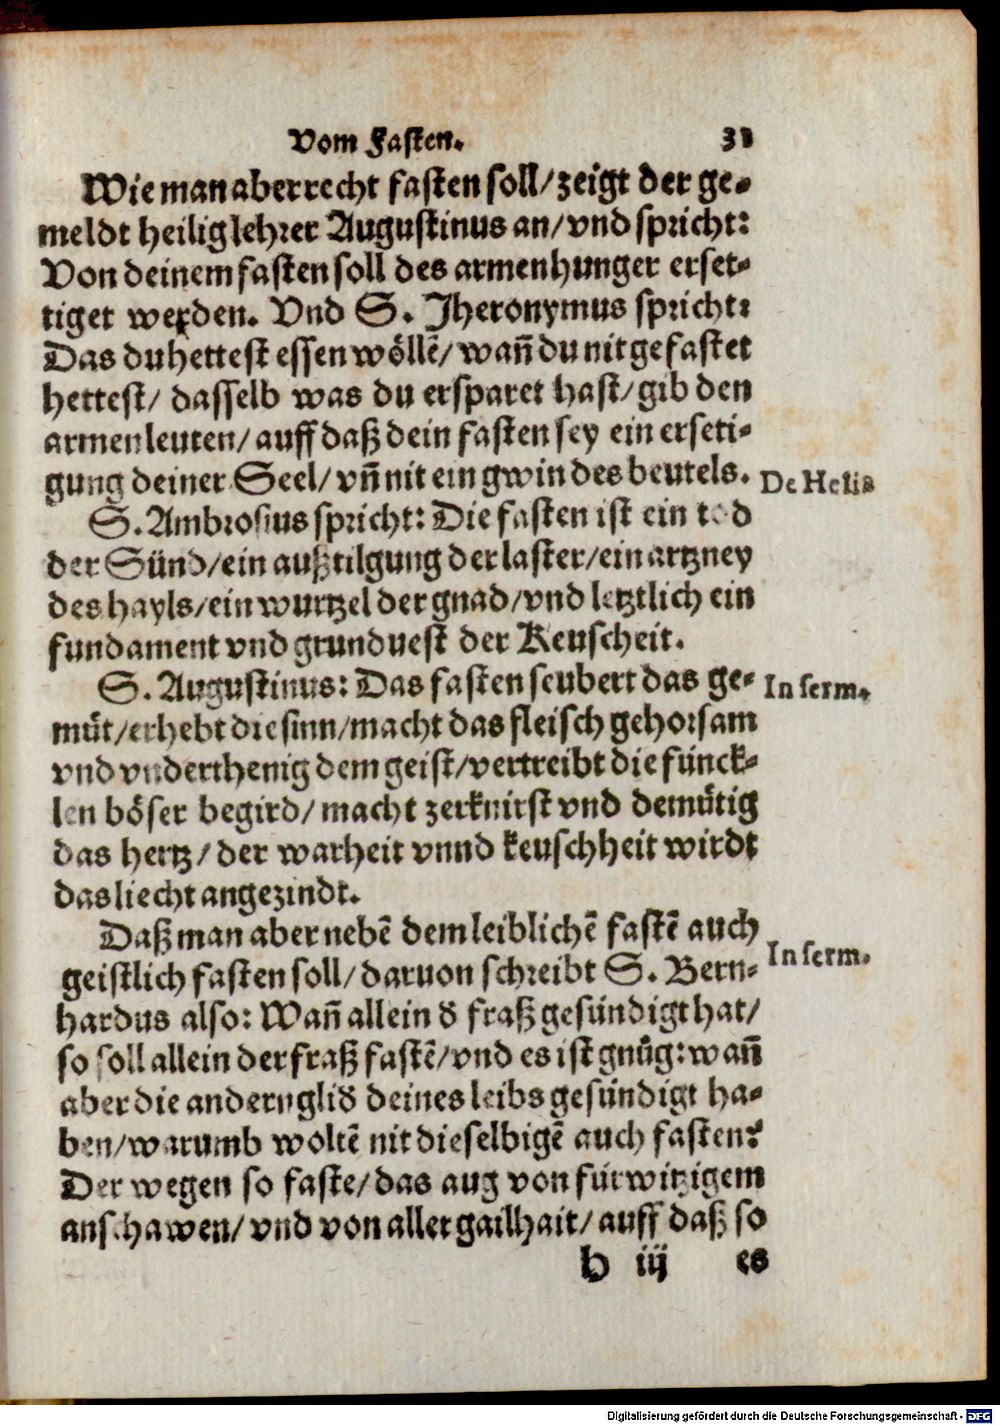 Vom Fasten. 31
Wie man aber recht fasten soll/ zeigt der ge-
meldt heilig lehrer Augustinus an/ vnd spricht:
Von deinem fasten soll des armen hunger erset-
tiget werden. Vnd S. Jheronymus spricht:
Das du hettest essen wöllē/ wañ du nit gefastet
hettest/ dasselb was du ersparet hast/ gib den
armen leuten/ auff daß dein fasten sey ein erseti-
gung deiner Seel/ vñ nit ein gwin des beutels.
De Helia
S. Ambrosius spricht: Die fasten ist ein tod
der Sünd/ ein außtilgung der laster/ ein artzney
des hayls/ ein wurtzel der gnad/ vnd letztlich ein
fundament vnd grunduest der Keuscheit.
S. Augustinus: Das fasten seubert das ge-
In serm.
müt/ erhebt die sinn/ macht das fleisch gehorsam
vnd vnderthenig dem geist/ vertreibt die fünck-
len böser begird/ macht zerknirst vnd demütig
das hertz/ der warheit vnnd keuschheit wirdt
das liecht angezindt.
Daß man aber nebē dem leiblichē fastē auch
In serm.
geistlich fasten soll/ daruon schreibt S. Bern-
hardus also: Wañ allein d̕ fraß gesündigt hat/
so soll allein der fraß fastē/ vnd es ist gnůg: wañ
aber die andern glid̕ deines leibs gesündigt ha-
ben/ warumb woltē nit dieselbigē auch fasten?
Der wegen so faste/ das aug von fürwitzigem
anschawen/ vnd von aller gailhait/ auff daß so
h iij es
Digitalisierung gefördert durch die Deutsche Forschungsgemeinschaft - DFG